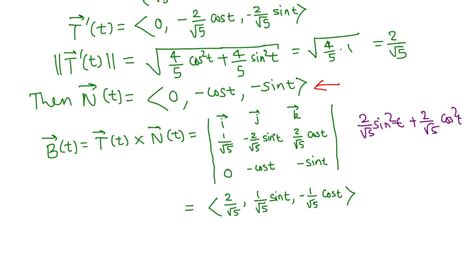 T⃗'(t) = ⟨0, -2/√5 cost, -2/√5 sint⟩
||T⃗'(t)|| = √(4/5 cos²t + 4/5 sin²t) = √(4/5 · 1) = 2/√5
Then N⃗(t) = ⟨0, -cost, -sint⟩ ←
B⃗(t) = T⃗(t) × N⃗(t) = | i⃗ j⃗ k⃗ |
| 1/√5 -2/√5 sint 2/√5 cost |
| 0 -cost -sint |
2/√5 sin²t + 2/√5 cos²t
= ⟨2/√5, 1/√5 sint, -1/√5 cost⟩